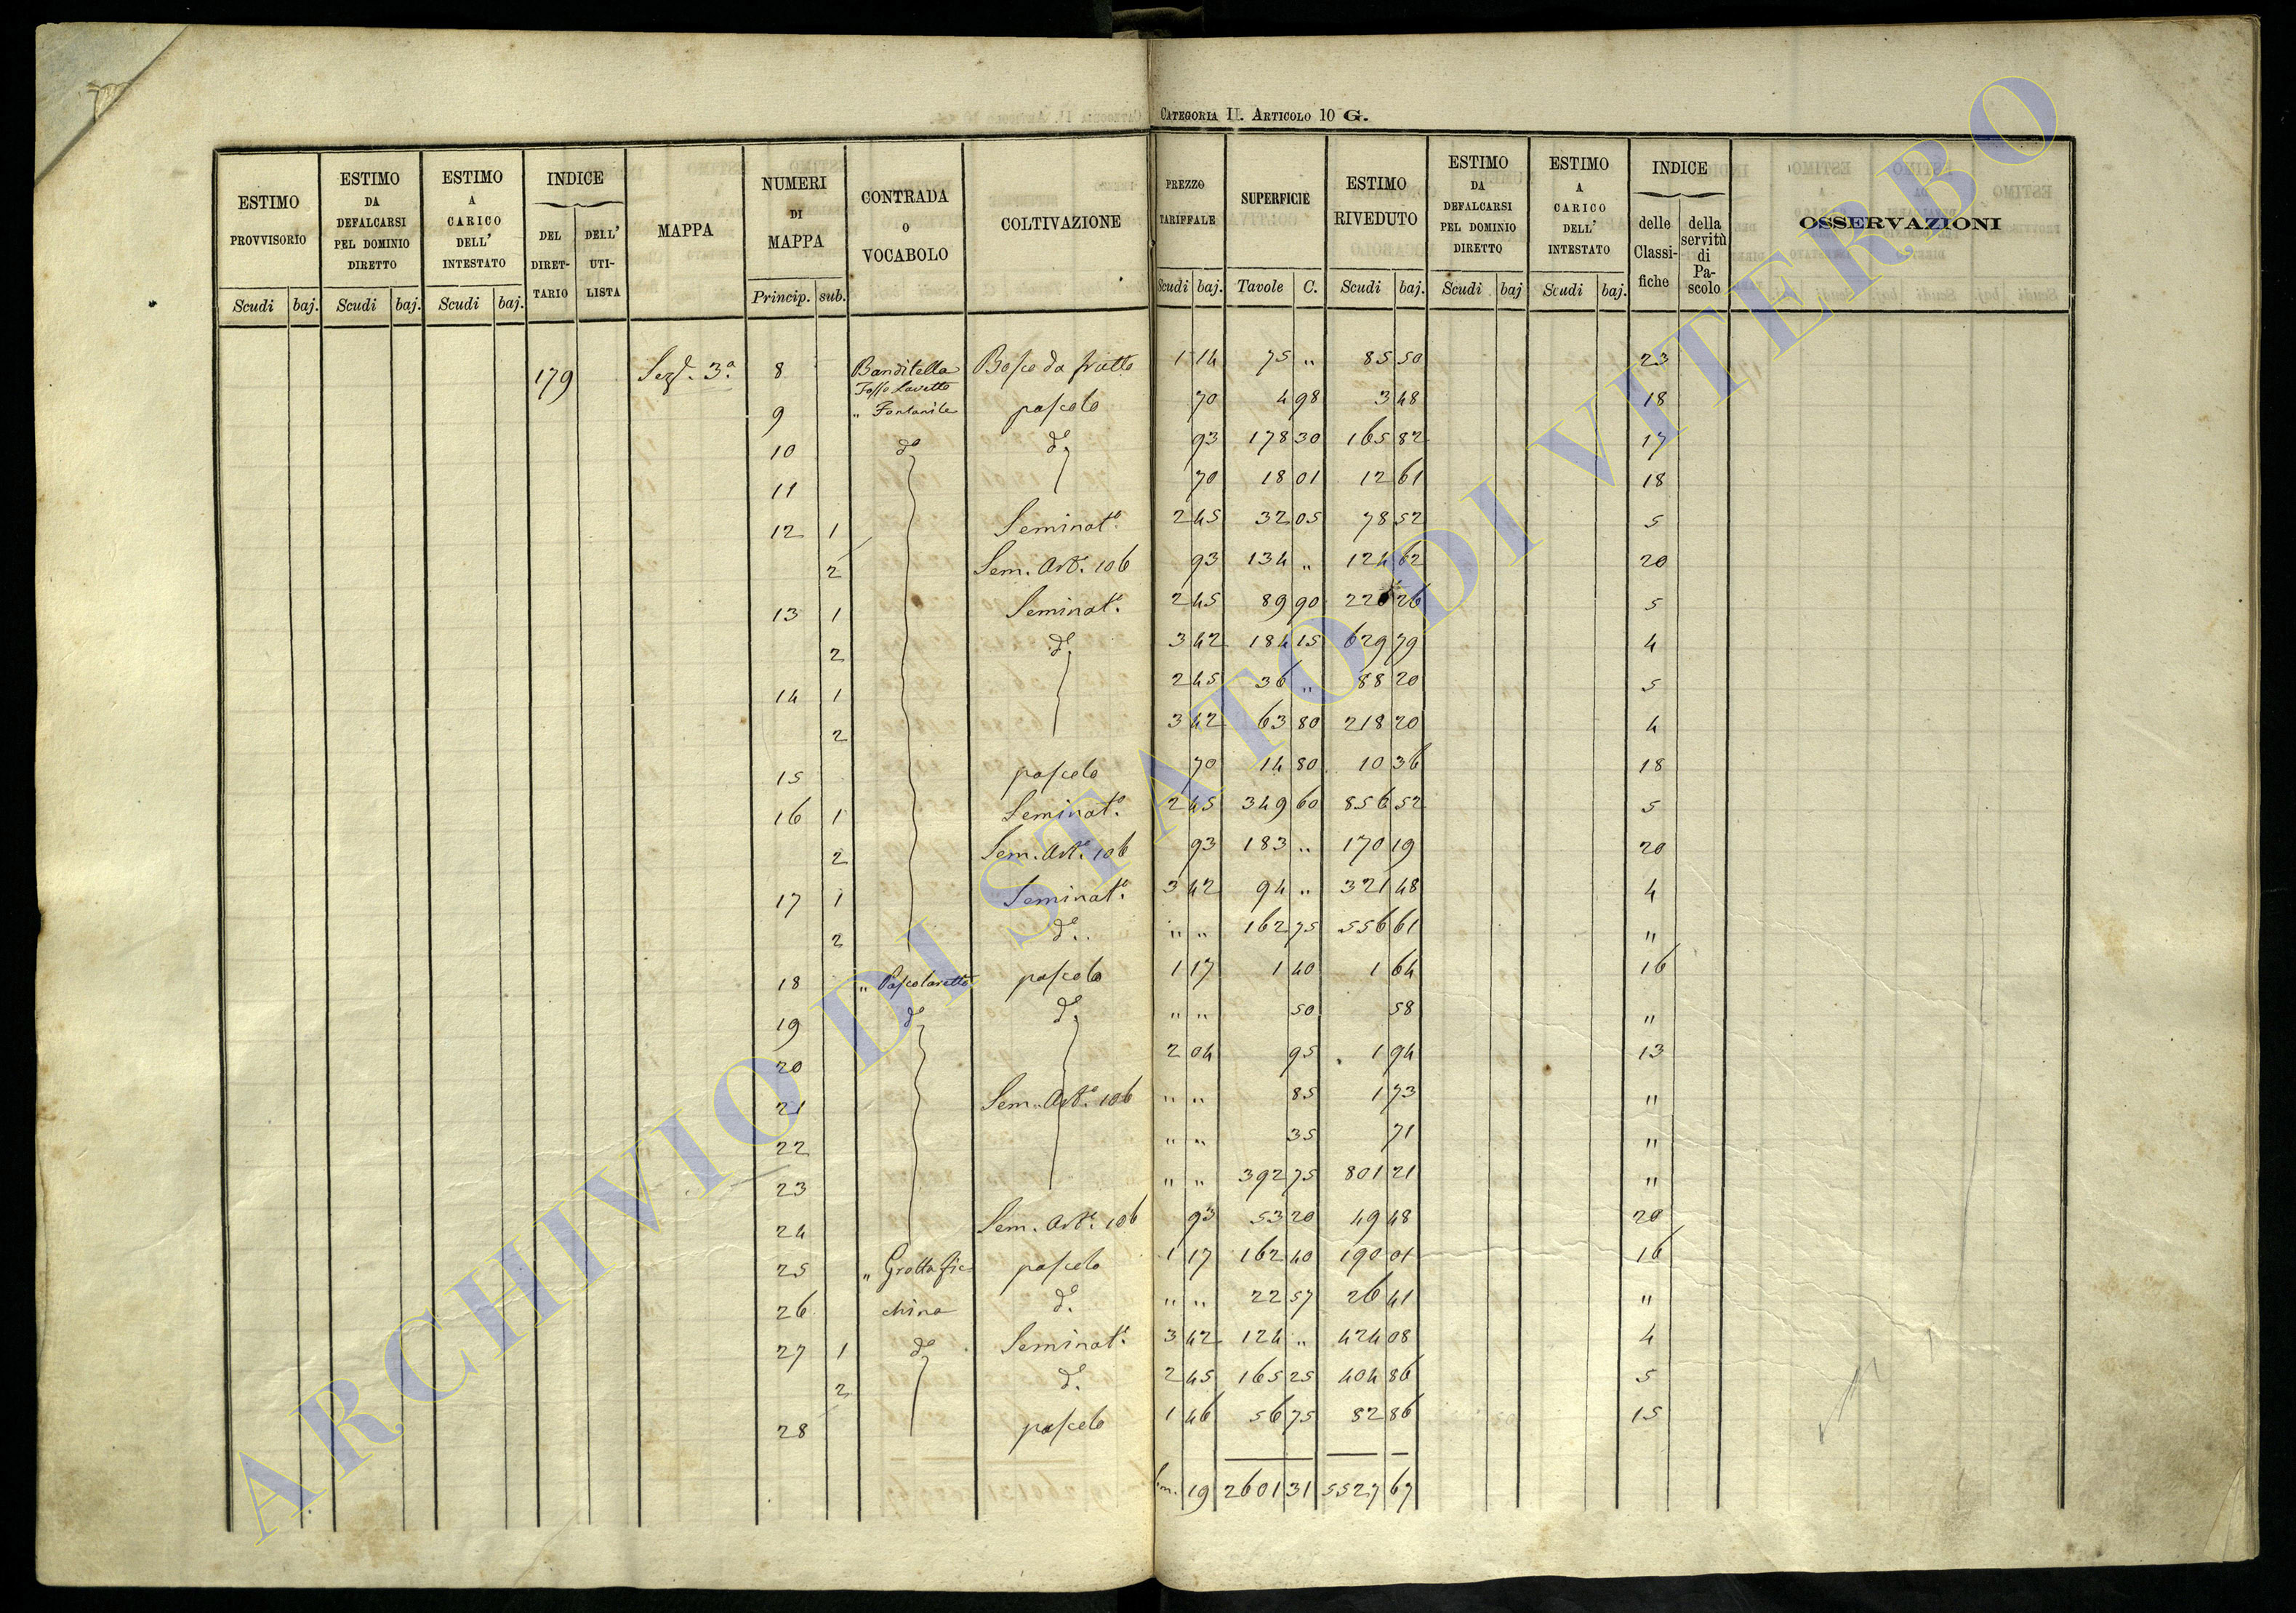 CATEGORIA II. ARTICOLO 10 G.
ESTIMO PROVVISORIO Scudi baj. | ESTIMO DA DEFALCARSI PEL DOMINIO DIRETTO Scudi baj. | ESTIMO A CARICO DELL' INTESTATO Scudi baj. | INDICE DEL DIRET-TARIO DELL' UTI-LISTA | MAPPA | NUMERI DI MAPPA Princip. sub. | CONTRADA O VOCABOLO | COLTIVAZIONE | PREZZO TARIFFALE Scudi baj. | SUPERFICIE Tavole C. | ESTIMO RIVEDUTO Scudi baj. | ESTIMO DA DEFALCARSI PEL DOMINIO DIRETTO Scudi baj | ESTIMO A CARICO DELL' INTESTATO Scudi baj. | INDICE delle Classi-fiche della servitù di Pa-scolo | OSSERVAZIONI
179 Seze. 3a. 8 Banditella Bosco da frutto 1 14 75 „ 85 50 23
Fosso Lavetto
9 „ Fontanile pascolo 70 4 98 3 48 18
10 do do 93 178 30 165 82 17
11 70 18 01 12 61 18
12 1 Seminato. 2 45 32 05 78 52 5
2 Sem. Arto. 106 93 134 „ 124 62 20
13 1 Seminato. 2 45 89 90 220 26 5
2 do 3 42 184 15 629 79 4
14 1 2 45 36 „ 88 20 5
2 3 42 63 80 218 20 4
15 pascolo 70 14 80 10 36 18
16 1 Seminato. 2 45 349 60 856 52 5
2 Sem. Arto. 106 93 183 „ 170 19 20
17 1 Seminato. 3 42 94 „ 321 48 4
2 do. „ „ 162 75 556 61 „
18 „ Pascolaretto pascolo 1 17 1 40 1 64 16
19 do do „ „ 50 58 „
20 2 04 95 1 94 13
21 Sem. Arto. 106 „ „ 85 1 73 „
22 „ „ 35 71 „
23 „ „ 392 75 801 21 „
24 Sem. Arto. 106 93 53 20 49 48 20
25 „ Grotta fic- pascolo 1 17 162 40 190 01 16
26 china do. „ „ 22 57 26 41 „
27 1 do Seminato. 3 42 124 „ 424 08 4
2 do. 2 45 165 25 404 86 5
28 pascolo 1 46 56 75 82 86 15
19 2601 31 5527 67
ARCHIVIO DI STATO DI VITERBO